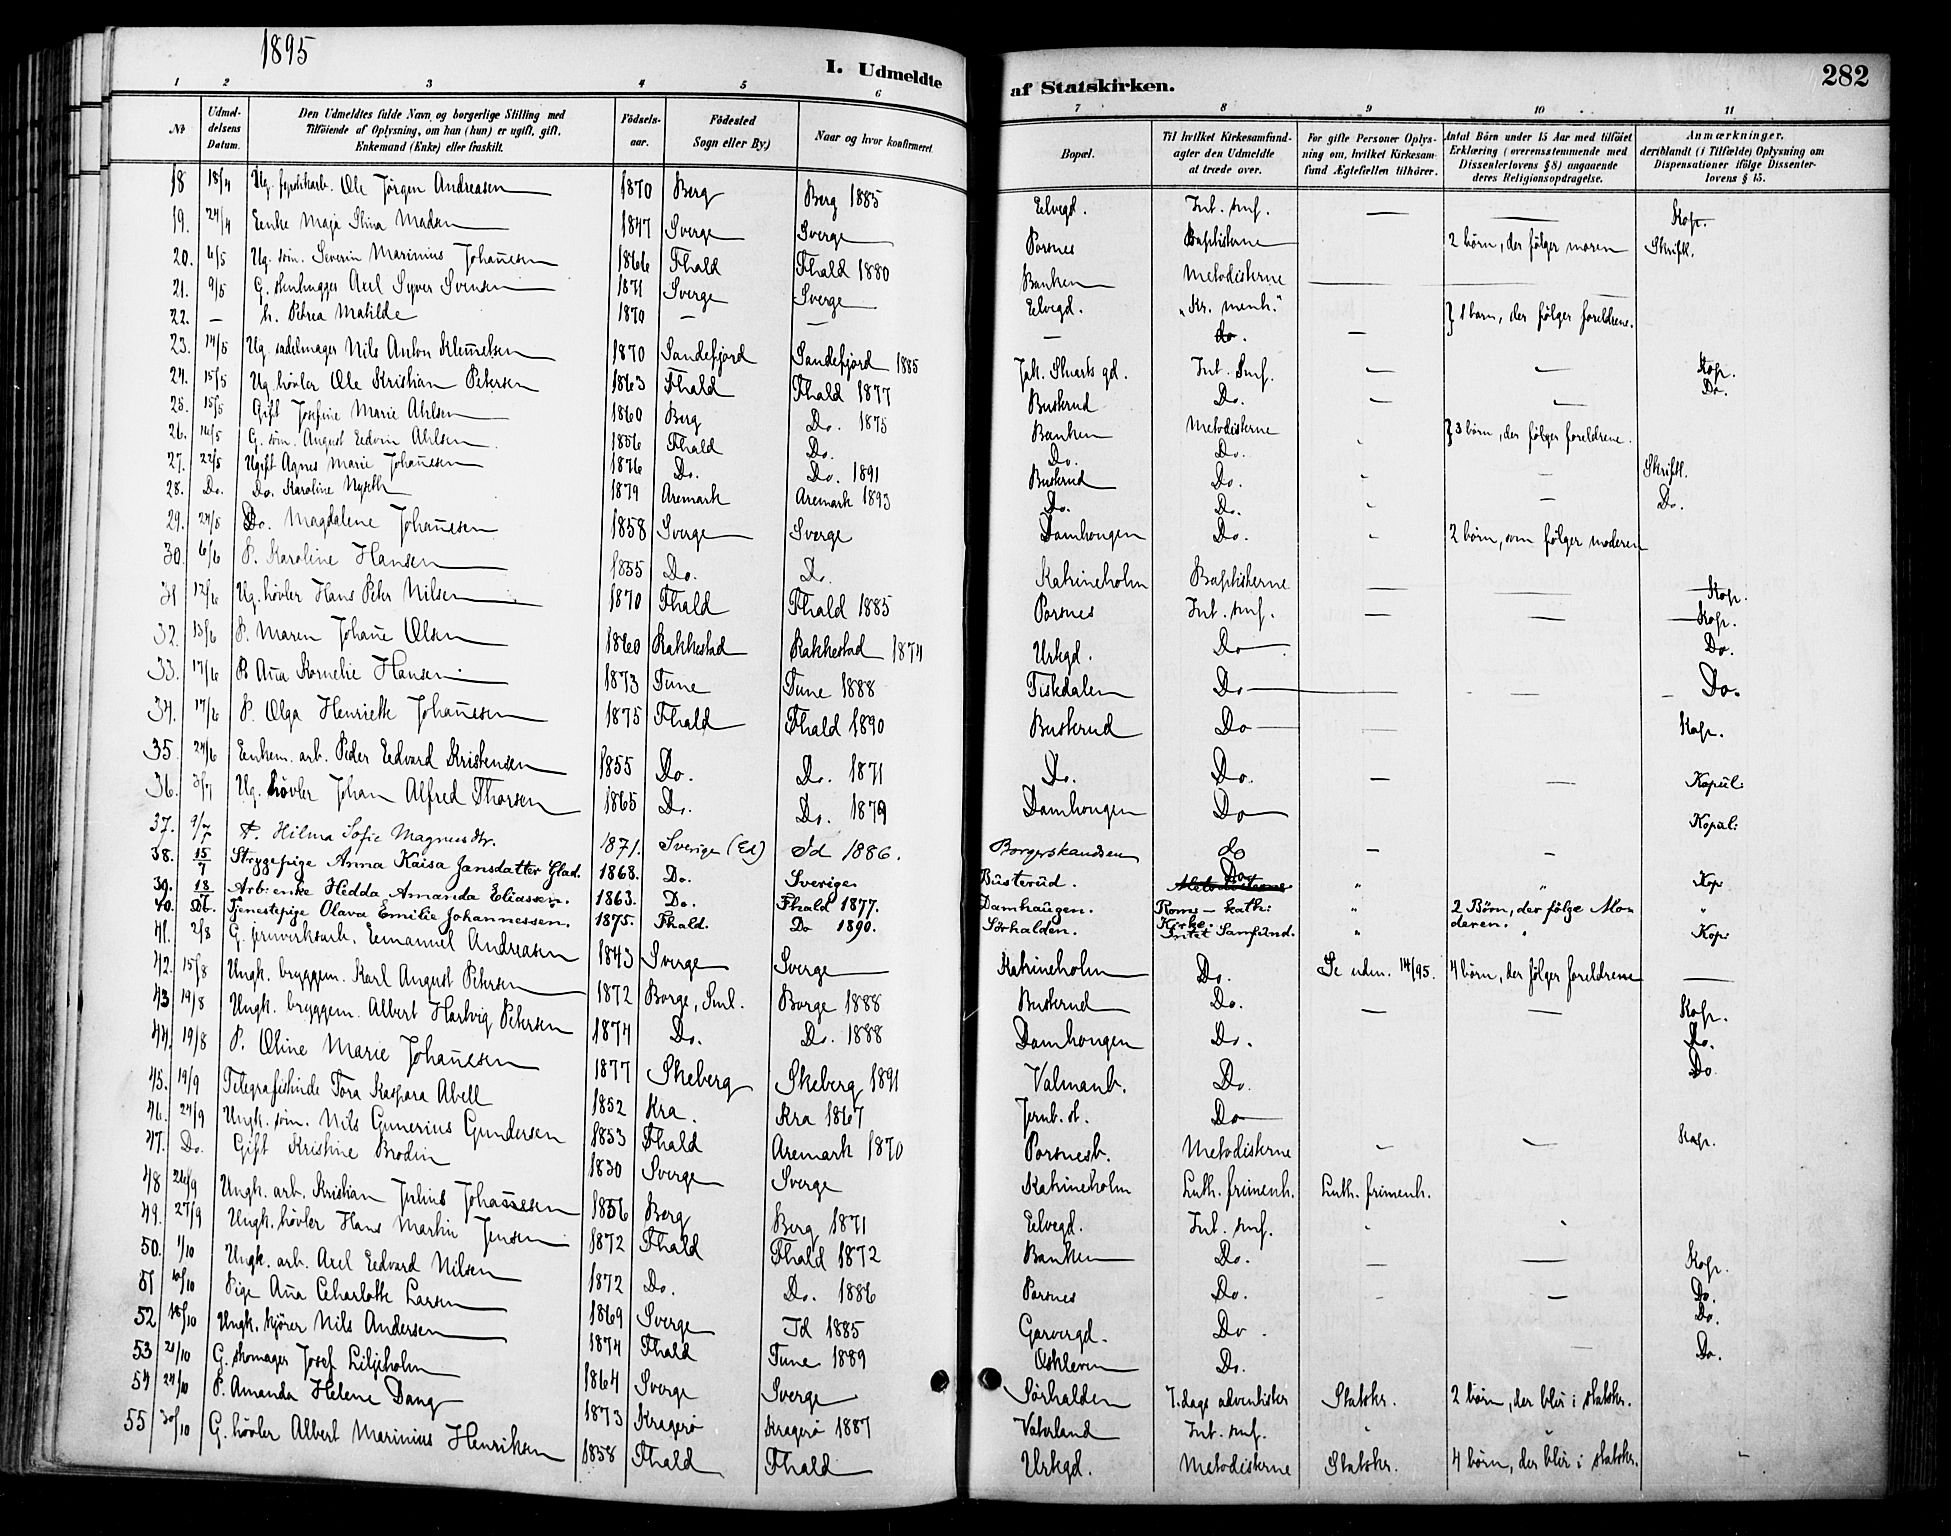 1895
I. Udmeldte af Statskirken. 282
1 2 3 4 5 6 7 8 9 10 11
№ | Udmeldelsens Datum. | Den Udmeldtes fulde Navn og borgerlige Stilling med Tilföiende af Oplysning, om han (hun) er ugift, gift, Enkemand (Enke) eller fraskilt. | Födselsaar. | Födested Sogn eller By) | Naar og hvor konfirmeret. | Bopæl. | Til hvilket Kirkesamfund agter den Udmeldte at træde over. | For gifte Personer Oplysning om, hvilket Kirkesamfund Ægtefællen tilhörer. | Antal Börn under 15 Aar med tilföiet Erklæring (overensstemmende med Dissenterlovens § 8) angaaende deres Religionsopdragelse. | Anmærkninger, deriblandt (i Tilfælde) Oplysning om Dispensationer ifölge Dissenterlovens § 15.
18 18/4 Ug. Ole Jörgen Andreasen 1870 Berg Berg 1885 Eelvegd. Int. smf. — — Kop.
19. 24/4 Enke Maja Stina Madsen 1847 Sverge Sverge Porsnes Baptisterne 2 börn, der fölger moren Skriftl.
20. 6/5 Ug. söm. Severin Marinius Johan̄esen 1866 Fhald Fhald 1880 Banken Metodisterne —
21. 9/5 G. stenhugger Axel Syver Svensen 1871 Sverge Sverge Elvegd. „Kr. menh." } 1 barn, der fölger foreldrene.
22. — h. Petrea Matilde 1870 — — — do. —
23. 14/5 Ug. sadelmager Nils Anton Klemetsen 1870 Sandefjord Sandefjord 1885 Jak. Stuarts gd. Int. Smf. — — Kop.
24. 15/5 Ug. hövler Ole Kristian Petersen 1863 Fhald Fhald 1877 Busterud Do. — — Do.
25. 15/5 Gift Josefine Marie Ahlsen 1860 Berg Do. 1875 Banken Metodisterne } 3 börn, der fölger foreldrene.
26. 14/5 G. söm. August Eedvin Ahlsen 1856 Fhald Do. Do. Do.
27. 22/5 Ugift Agnes Marie Johan̄esen 1876 Do. Do. 1891 Busterud Do. — Skriftl.
28. Do. Do. Karoline Nyseth 1879 Aremark Aremark 1893 Do. Do. — Do.
29. 24/5 Do. Magdalene Johan̄esen 1858 Sverge Sverge Damhougen Do. 2 börn, som fölger moderen
30. 6/6 P. Karoline Hansen 1855 Do. Do. Katrineholm Baptisterne — — Kop.
31 12/6 Ug. hövler Hans Peter Nilsen 1870 Fhald Fhald 1885 Porsnes Int. smf. — — Kop.
32. 13/6 P. Maren Johan̄e Olsen 1860 Rakkestad Rakkestad 1874 Urtegd. Do Do.
33. 17/6 P. An̄a Kornelie Hansen 1873 Tune Tune 1888 Tistdalen Do — — Do.
34. 17/6 P. Olga Henriette Johan̄esen 1875 Fhald Fhald 1890 Busterud Do — — Kop.
35 24/6 Enkem. arb. Peder Eedvard Kristensen 1855 Do. Do. 1871 Do. Do. — — Kopul:
36. 3/7 Ug. hövler Johan Alfred Thorsen 1865 Do. Do. 1879 Damhougen Do Kopul:
37. 9/7 P. Hilma Sofie Magnusdtr. 1871. Sverige (Ed) Id 1886. Borgerskandsen do — —
38. 15/7 Strygepige Anna Kaisa Jansdatter Glad. 1868. Do. Sverige Busterud. Metodisterne Do " " Kop
39. 18/7 Arb: enke Hedda Amanda Eliassen. 1863. Do. Fhald 1877. Damhaugen. Rom. - kath: Kirke. " 2 Börn, der fölge Moderen. "
40. Do. Tjenestepige Olava Emilie Johannessen. 1875. Fhald. Do 1890. Sörhalden. Intet Samfund. " " Kop:
41. 2/8 G. Eemanuel Andreasen 1843 Sverge Sverge Katrineholm Do. Se udm. 14/95. 4 börn, der fölger foreldrene —
42. 15/8 Ungk. bryggem. Karl August Petersen 1872 Borge, Sml. Borge 1888 Busterud Do. — — Kop.
43. 19/8 Ungk. bryggem. Albert Hartvig Petersen 1874 Do. Do. 1888 Damhougen Do. Do.
44. 19/8 P. Oline Marie Johan̄esen 1877 Skeberg Skeberg 1891 Valmanb. Do. Do
45. 19/9 Telegrafistinde Tora Kaspara Abell 1852 Kra. Kra 1867 Jernb. st. Do
46. 24/9 Ungk. söm. Nils Gunerius Gundersen 1853 Fhald Aremark 1870 Porsnesb. Metodisterne — — Kop.
47. Do. Gift Kristine Brodin 1830 Sverge Sverge Katrineholm Luth. frimenh. Luth. frimenh.
48 26/9 Ungk. arb. Kristian Julius Johan̄esen 1856 Berg Berg 1871 Eelvegd. Int. smf.
49. 27/9 Ungk. hövler Hans Martin Jensen 1872 Fhald Fhald 1872 Banken Do. — — Kop.
50. 1/10 Ungk. arb. Axel Eedvard Nilsen 1872 Do. Do. 1886 Porsnes Do. — Do.
51 10/10 Pige An̄a Charlotte Larsen 1869 Sverge Id 1885 Garvergd. Do. Do.
52 18/10 Ungk. kjörer Nils Andersen 1874 Fhald Tune 1889 Do. — Do.
53 21/10 G. skomager Josef Liljeholm 1864 Sverge Sverge Sörhalden 7. dags adventister Statskr. 2 börn, der blir i statskr.
54 24/10 P. Amanda Helene Dang 1873 Kragerö Kragerö 1887 Vaterland Int. smf.
55 30/10 G. hövler Albert Marinius Henriksen 1858 Fhald Fhald Urtegd. Metodisterne Statskr. 4 börn, der blir i statskr.